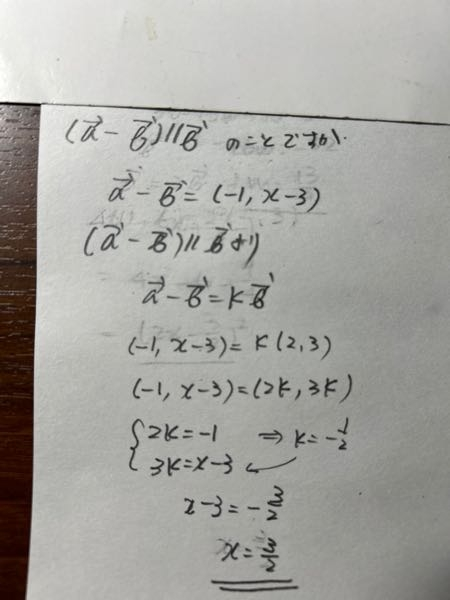 (a⃗ - b⃗) // b⃗ のことですか.
a⃗ - b⃗ = (-1, x-3)
(a⃗ - b⃗) // b⃗ より
a⃗ - b⃗ = k b⃗
(-1, x-3) = k(2, 3)
(-1, x-3) = (2k, 3k)
{ 2k = -1 ⇒ k = -1/2
3k = x-3 ↙
x-3 = -3/2
x = 3/2